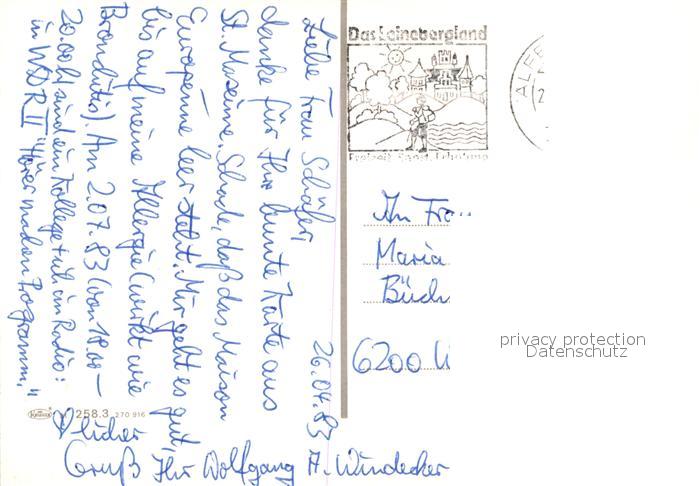 26.04.83
Liebe Frau Schäfer,
danke für Ihre bunte Karte aus
St. Maxime. Schade, daß das Maison
Européenne leer steht. Mir geht es gut,
bis auf meine Allergie (wirkt wie
Bronchitis). Am 2.07.83 (von 18.00 –
20.00 h) sind ein Kollege + ich im Radio:
in WDR II, "Hörer machen Programm."
Herzlicher
Gruß Ihr Wolfgang A. Windecker
Das Leinebergland
Freizeit Sport Erholung
ALFE
2
An Frau
Maria
Büch
6200 W
privacy protection
Datenschutz
Krüger 258.3 270 916